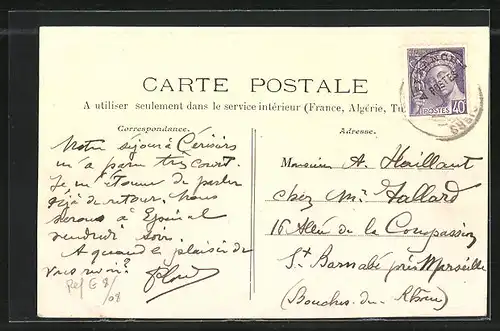 CARTE POSTALE
A utiliser seulement dans le service intérieur (France, Algérie, Tu
Correspondance.
Adresse.
Notre séjour à Cérisiers
m'a paru très court.
Je m'étonne de parler
déjà de retour. Nous
serons à Epinal
vendredi soir.
A quand le plaisir de
vous voir?
Ref G 8/08
Monsieur A. Haillant
chez Mr Fallard
16 Allée de la Compassion
St Barnabé près Marseille
(Bouches-du-Rhône)
POSTES 40